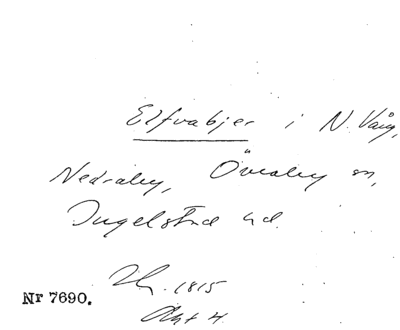 Elfvabjer i N. Vång,
Nedraby, Övraby sn,
Ingelstad hd.
1815
Akt 4.
Nr 7690.